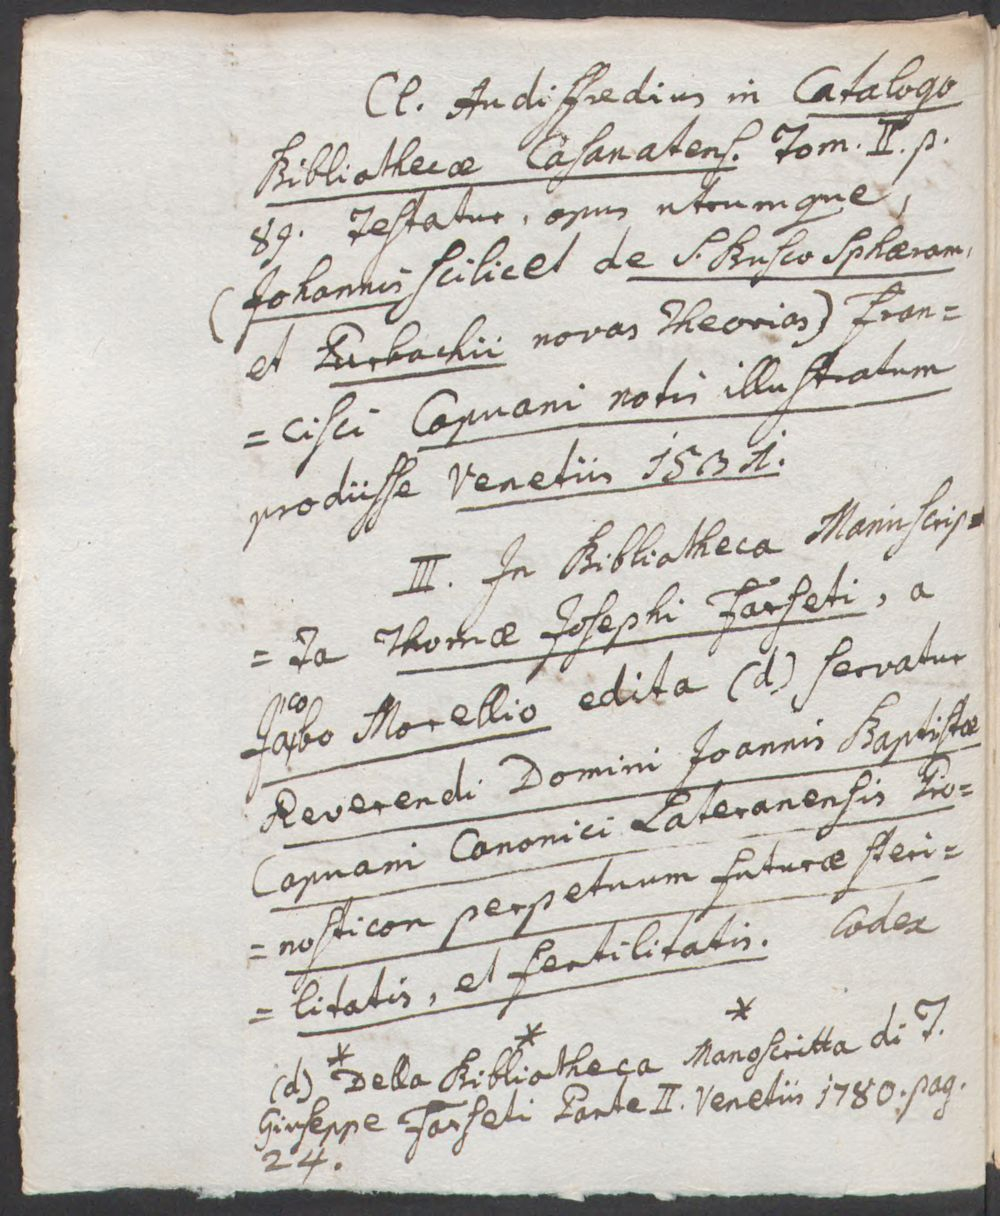 Cl. Audiffredius in Catalogo
Bibliothecæ Casanatens. Tom. II. p.
89. Testatur, opus utrumque,
(Johannis scilicet de S. Busco Sphæram,
et Purbachii novas Theorias) Fran=
=cisci Capuani notis illustratum
prodiisse Venetiis 1531.
III. In Bibliotheca Manuscrip=
=ta Thomæ Josephi Farseti, a
Jacobo Morellio edita (d) servatur
Reverendi Domini Joannis Baptistæ
Capuani Canonici Lateranensis Pro=
=nosticon perpetuum futuræ steri=
=litatis, et fertilitatis. Codex
(d) * Della Bibliotheca * Manoscritta * di T.
Giuseppe Farseti Parte II. Venetiis 1780. pag.
24.